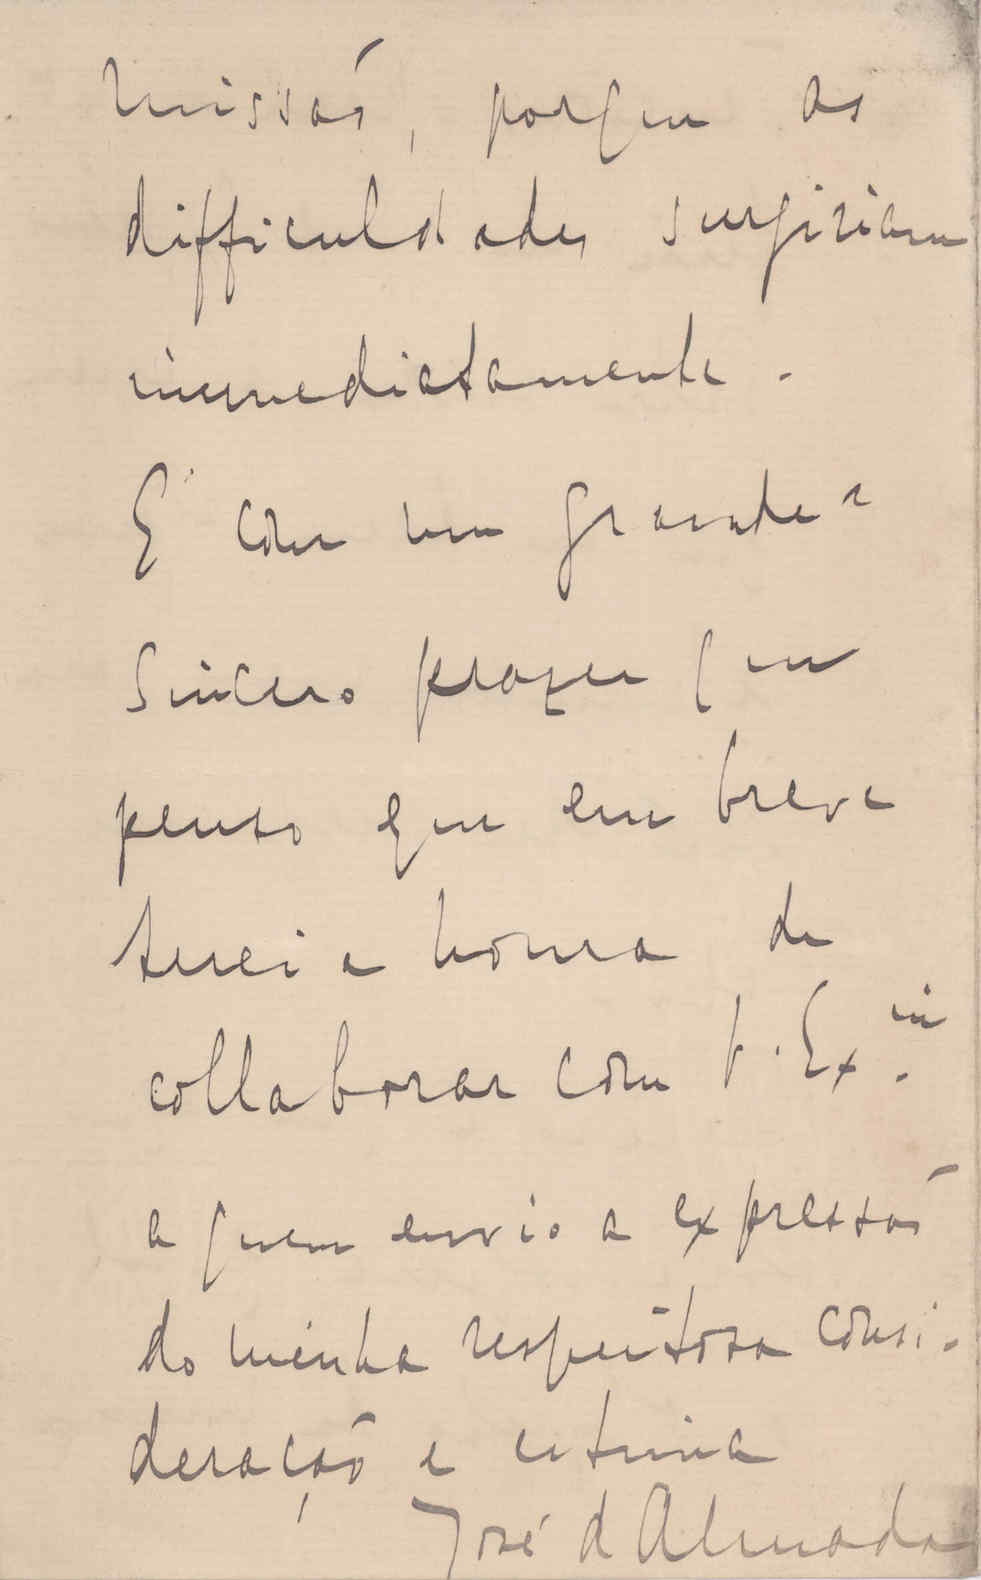 missão, porque as
difficuldades surgiriam
immediatamente.
É com um grande e
sincero prazer que
penso que em breve
terei a honra de
collaborar com V. Ex.ia
a quem envio a expressão
da minha respeitosa consi-
deração e estima
José d'Almada